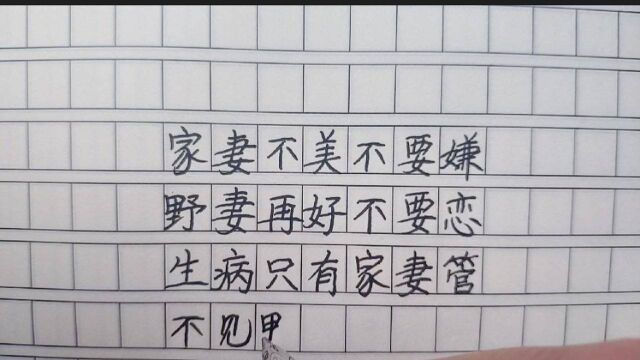 家妻不美不要嫌
野妻再好不要恋
生病只有家妻管
不见